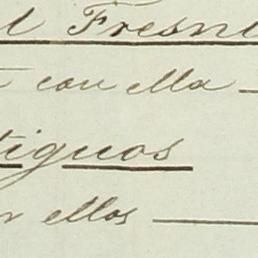 l Fresn
con ella
tiguos
r ellos